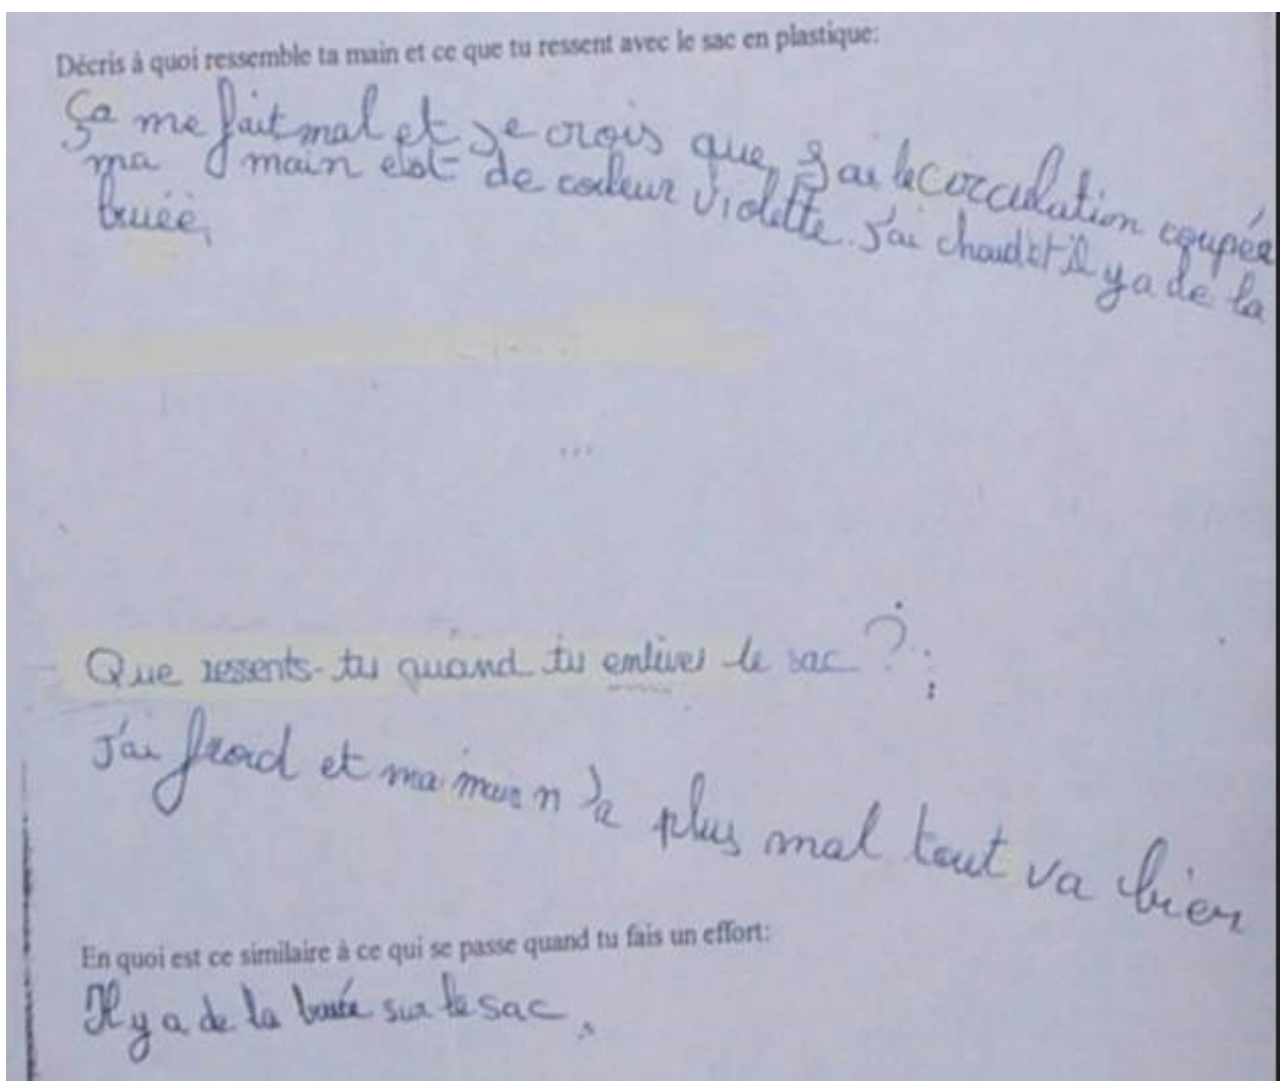 Décris à quoi ressemble ta main et ce que tu ressent avec le sac en plastique:
Ça me fait mal et je crois que j'ai le circulation coupée
ma main est de couleur violette. J'ai chaud et il y a de la
buée,
...
Que ressents-tu quand tu enlèves le sac ?
J'ai froid et ma main n'a plus mal tout va bien
En quoi est ce similaire à ce qui se passe quand tu fais un effort:
Il y a de la buée sur le sac.